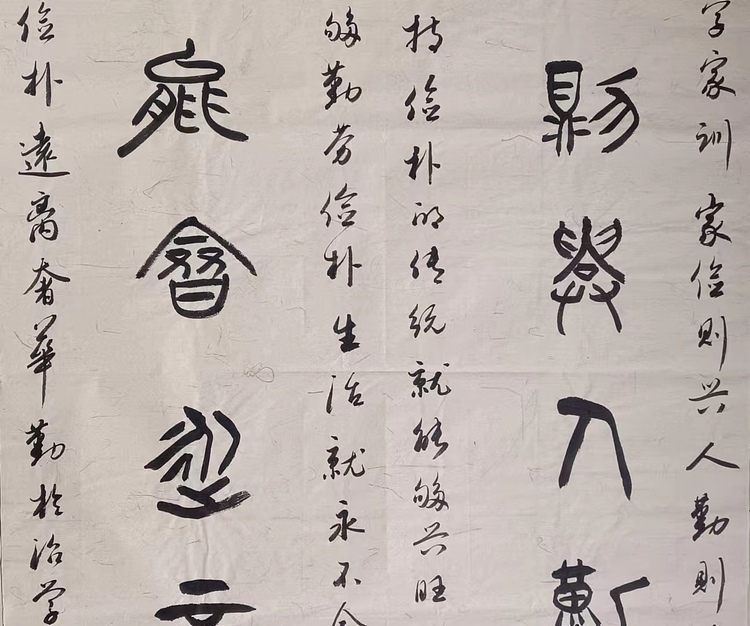 学家训 家俭则兴人勤则
則興人勤
持俭朴的传统就能够兴旺
够勤劳俭朴生活就永不
能
俭朴遠离奢華勤於治学